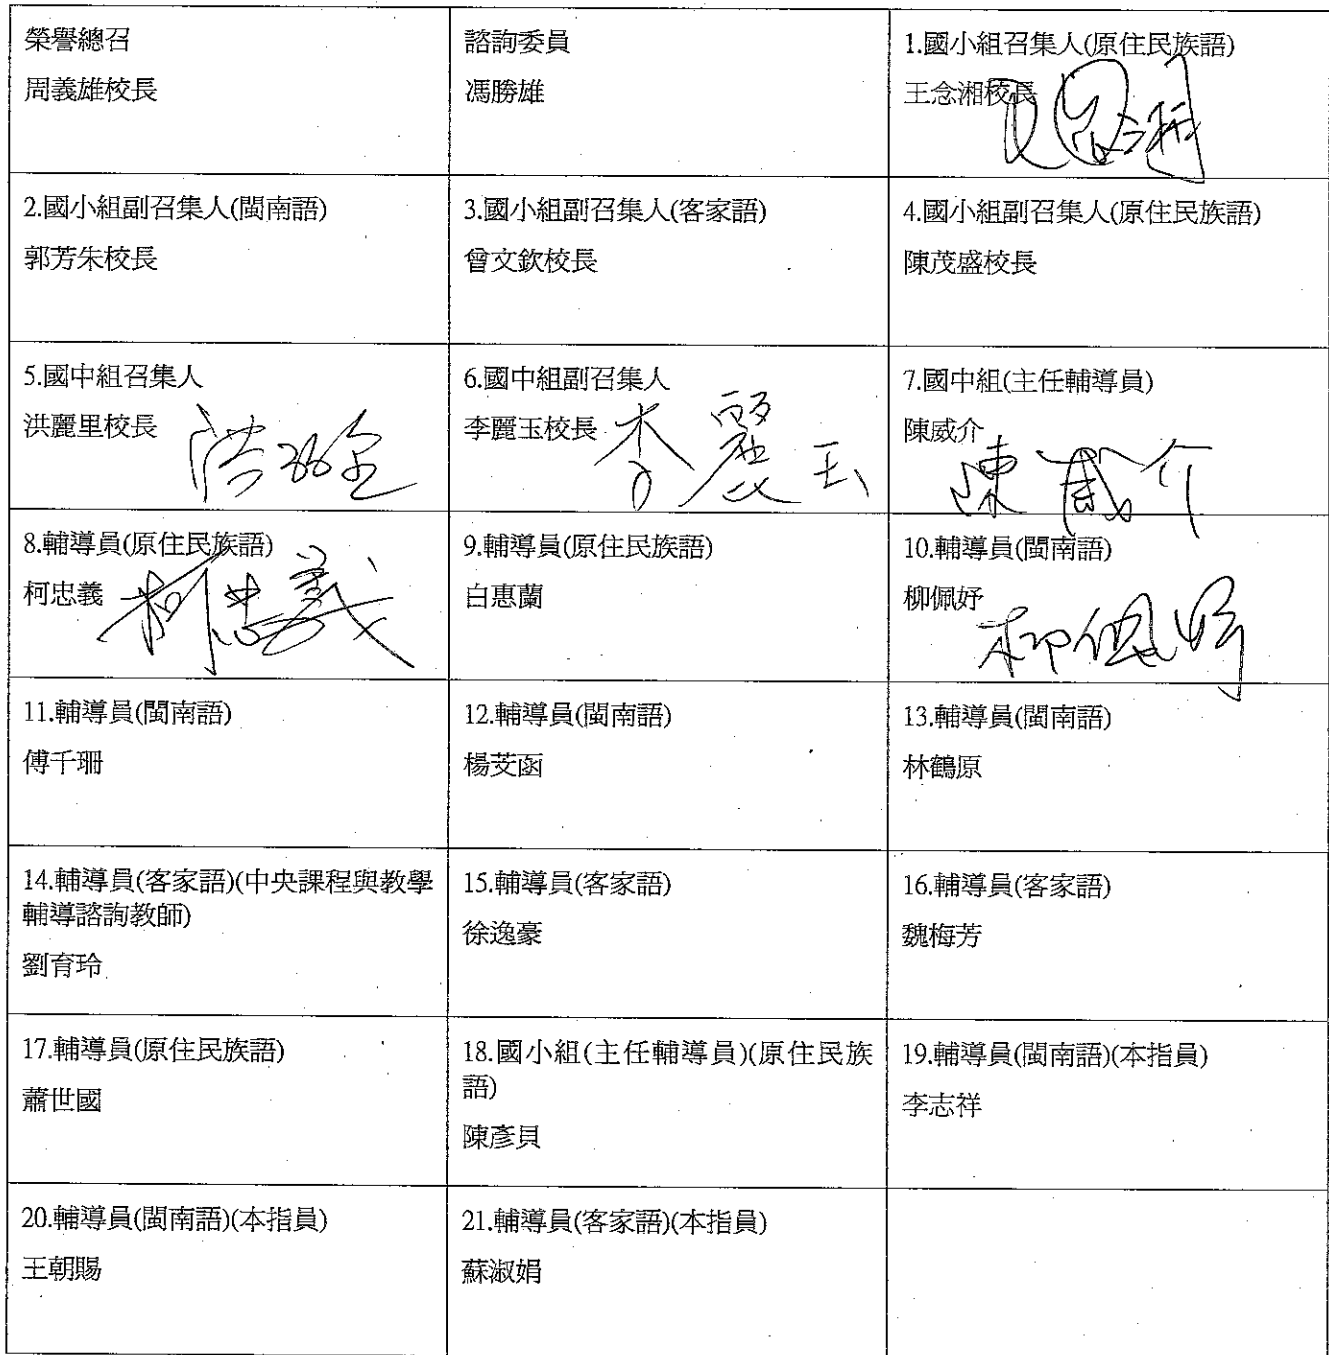 榮譽總召
周義雄校長
諮詢委員
馮勝雄
1.國小組召集人(原住民族語)
王念湘校長
2.國小組副召集人(閩南語)
郭芳朱校長
3.國小組副召集人(客家語)
曾文欽校長
4.國小組副召集人(原住民族語)
陳茂盛校長
5.國中組召集人
洪麗里校長
6.國中組副召集人
李麗玉校長
李麗玉
7.國中組(主任輔導員)
陳威介
陳威介
8.輔導員(原住民族語)
柯忠義
柯忠義
9.輔導員(原住民族語)
白惠蘭
10.輔導員(閩南語)
柳佩妤
柳佩妤
11.輔導員(閩南語)
傅千珊
12.輔導員(閩南語)
楊芠函
13.輔導員(閩南語)
林鶴原
14.輔導員(客家語)(中央課程與教學
輔導諮詢教師)
劉育玲
15.輔導員(客家語)
徐逸豪
16.輔導員(客家語)
魏梅芳
17.輔導員(原住民族語)
蕭世國
18.國小組(主任輔導員)(原住民族
語)
陳彥貝
19.輔導員(閩南語)(本指員)
李志祥
20.輔導員(閩南語)(本指員)
王朝賜
21.輔導員(客家語)(本指員)
蘇淑娟